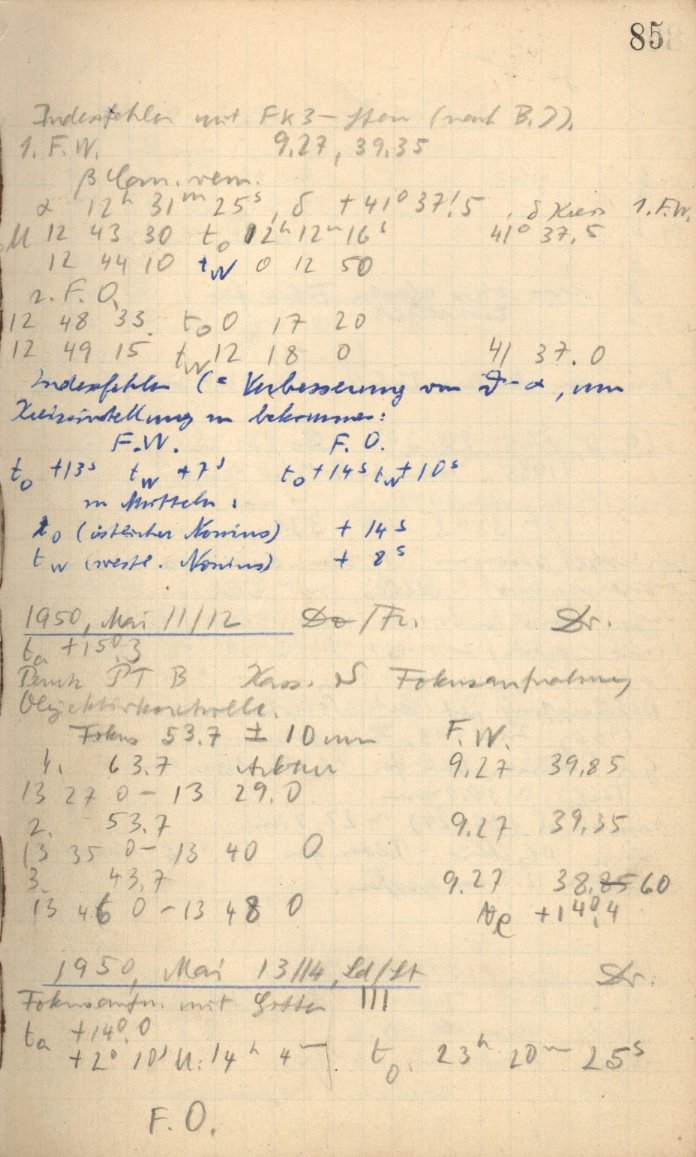 85
Indexfehler mit FK3-Stern (nach B.J).
1. F.W. 9.27, 39.35
β Can. ven.
α 12h 31m 25s, δ +41° 37!5, δ Kreis 1.F.W.
U 12 43 30 to 12h 12m 16s 41° 37.5
12 44 10 tw 0 12 50
2. F.O.
12 48 33. to 0 17 20
12 49 15 tw 12 18 0 41 37.0
Indexfehler (= Verbesserung von ϑ-α, um
Kreiseinstellung zu bekommen:
F.W. F.O.
to +13s tw +7s to +14s tw +10s
im Mitteln:
to (östlicher Nonius) + 14s
tw (westl. Nonius) + 8s
1950, Mai 11/12 Do/Fr. Dr.
ta +15°.3
PT B Kass. Fokusaufnahme
Objektivkontrolle.
Fokus 53.7 ± 10mm F.W.
1. 63.7 Arktur 9.27 39.85
13 27 0 - 13 29.0
2. 53.7 9.27 39.35
13 35 0 - 13 40 0
3. 43.7 9.27 38.85 60
13 46 0 - 13 48 0 +14°.4
1950, Mai 13/14, Sd/St Dr.
Fokusaufn. mit Gitter III
ta +14°.0
+20 10s U: 14h 4m to. 23h 20m 25s
F.O.